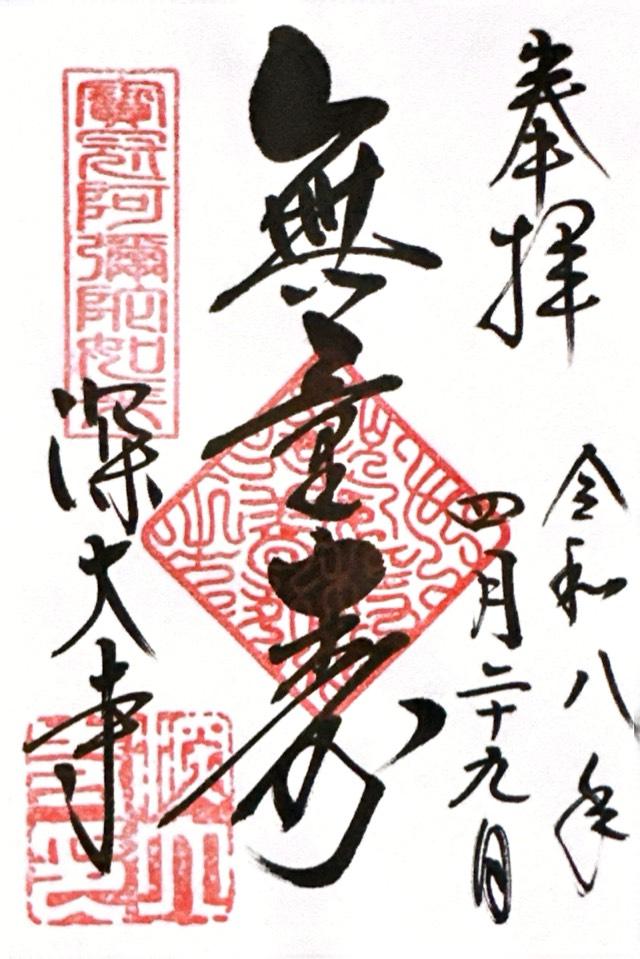 奉拝
令和八年
四月二十九日
無量寿
寶冠阿彌陀如来
深大寺